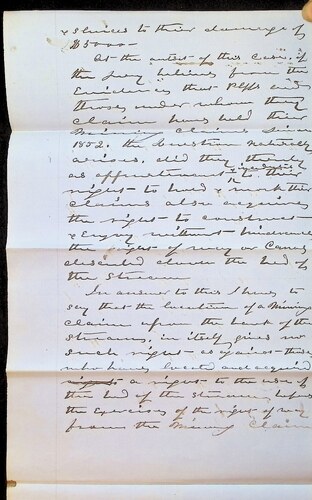 & sluices to their damage of
$5000 —
At the outset of this case, if
the Jury believe from the
Evidence that Plffs and
those under whom they
claim have held their
Mining Claims since
1852. the question naturally
arises, did they, thereby
as appurtenant to their
right to hold & work their
claims also acquire
the right to construct
& Enjoy without hindrance
the right of way or Canal
down the bed of
the Stream
In answer to this I have to
say that the location of a Mining
Claim upon the bank of the
Stream, in itself gives no
such right as against those
who have located and acquired
a right to the use of
the bed of the Stream, before
the Exercise of the right of way
from the Mining Claim